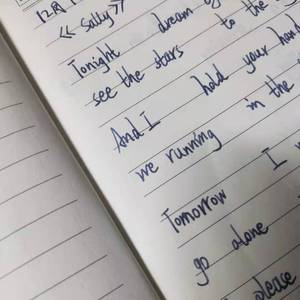 12月
《Sally》
Tonight dream
see the stars to the
And I hold your hand
we running in the
Tomorrow I
go alone
please